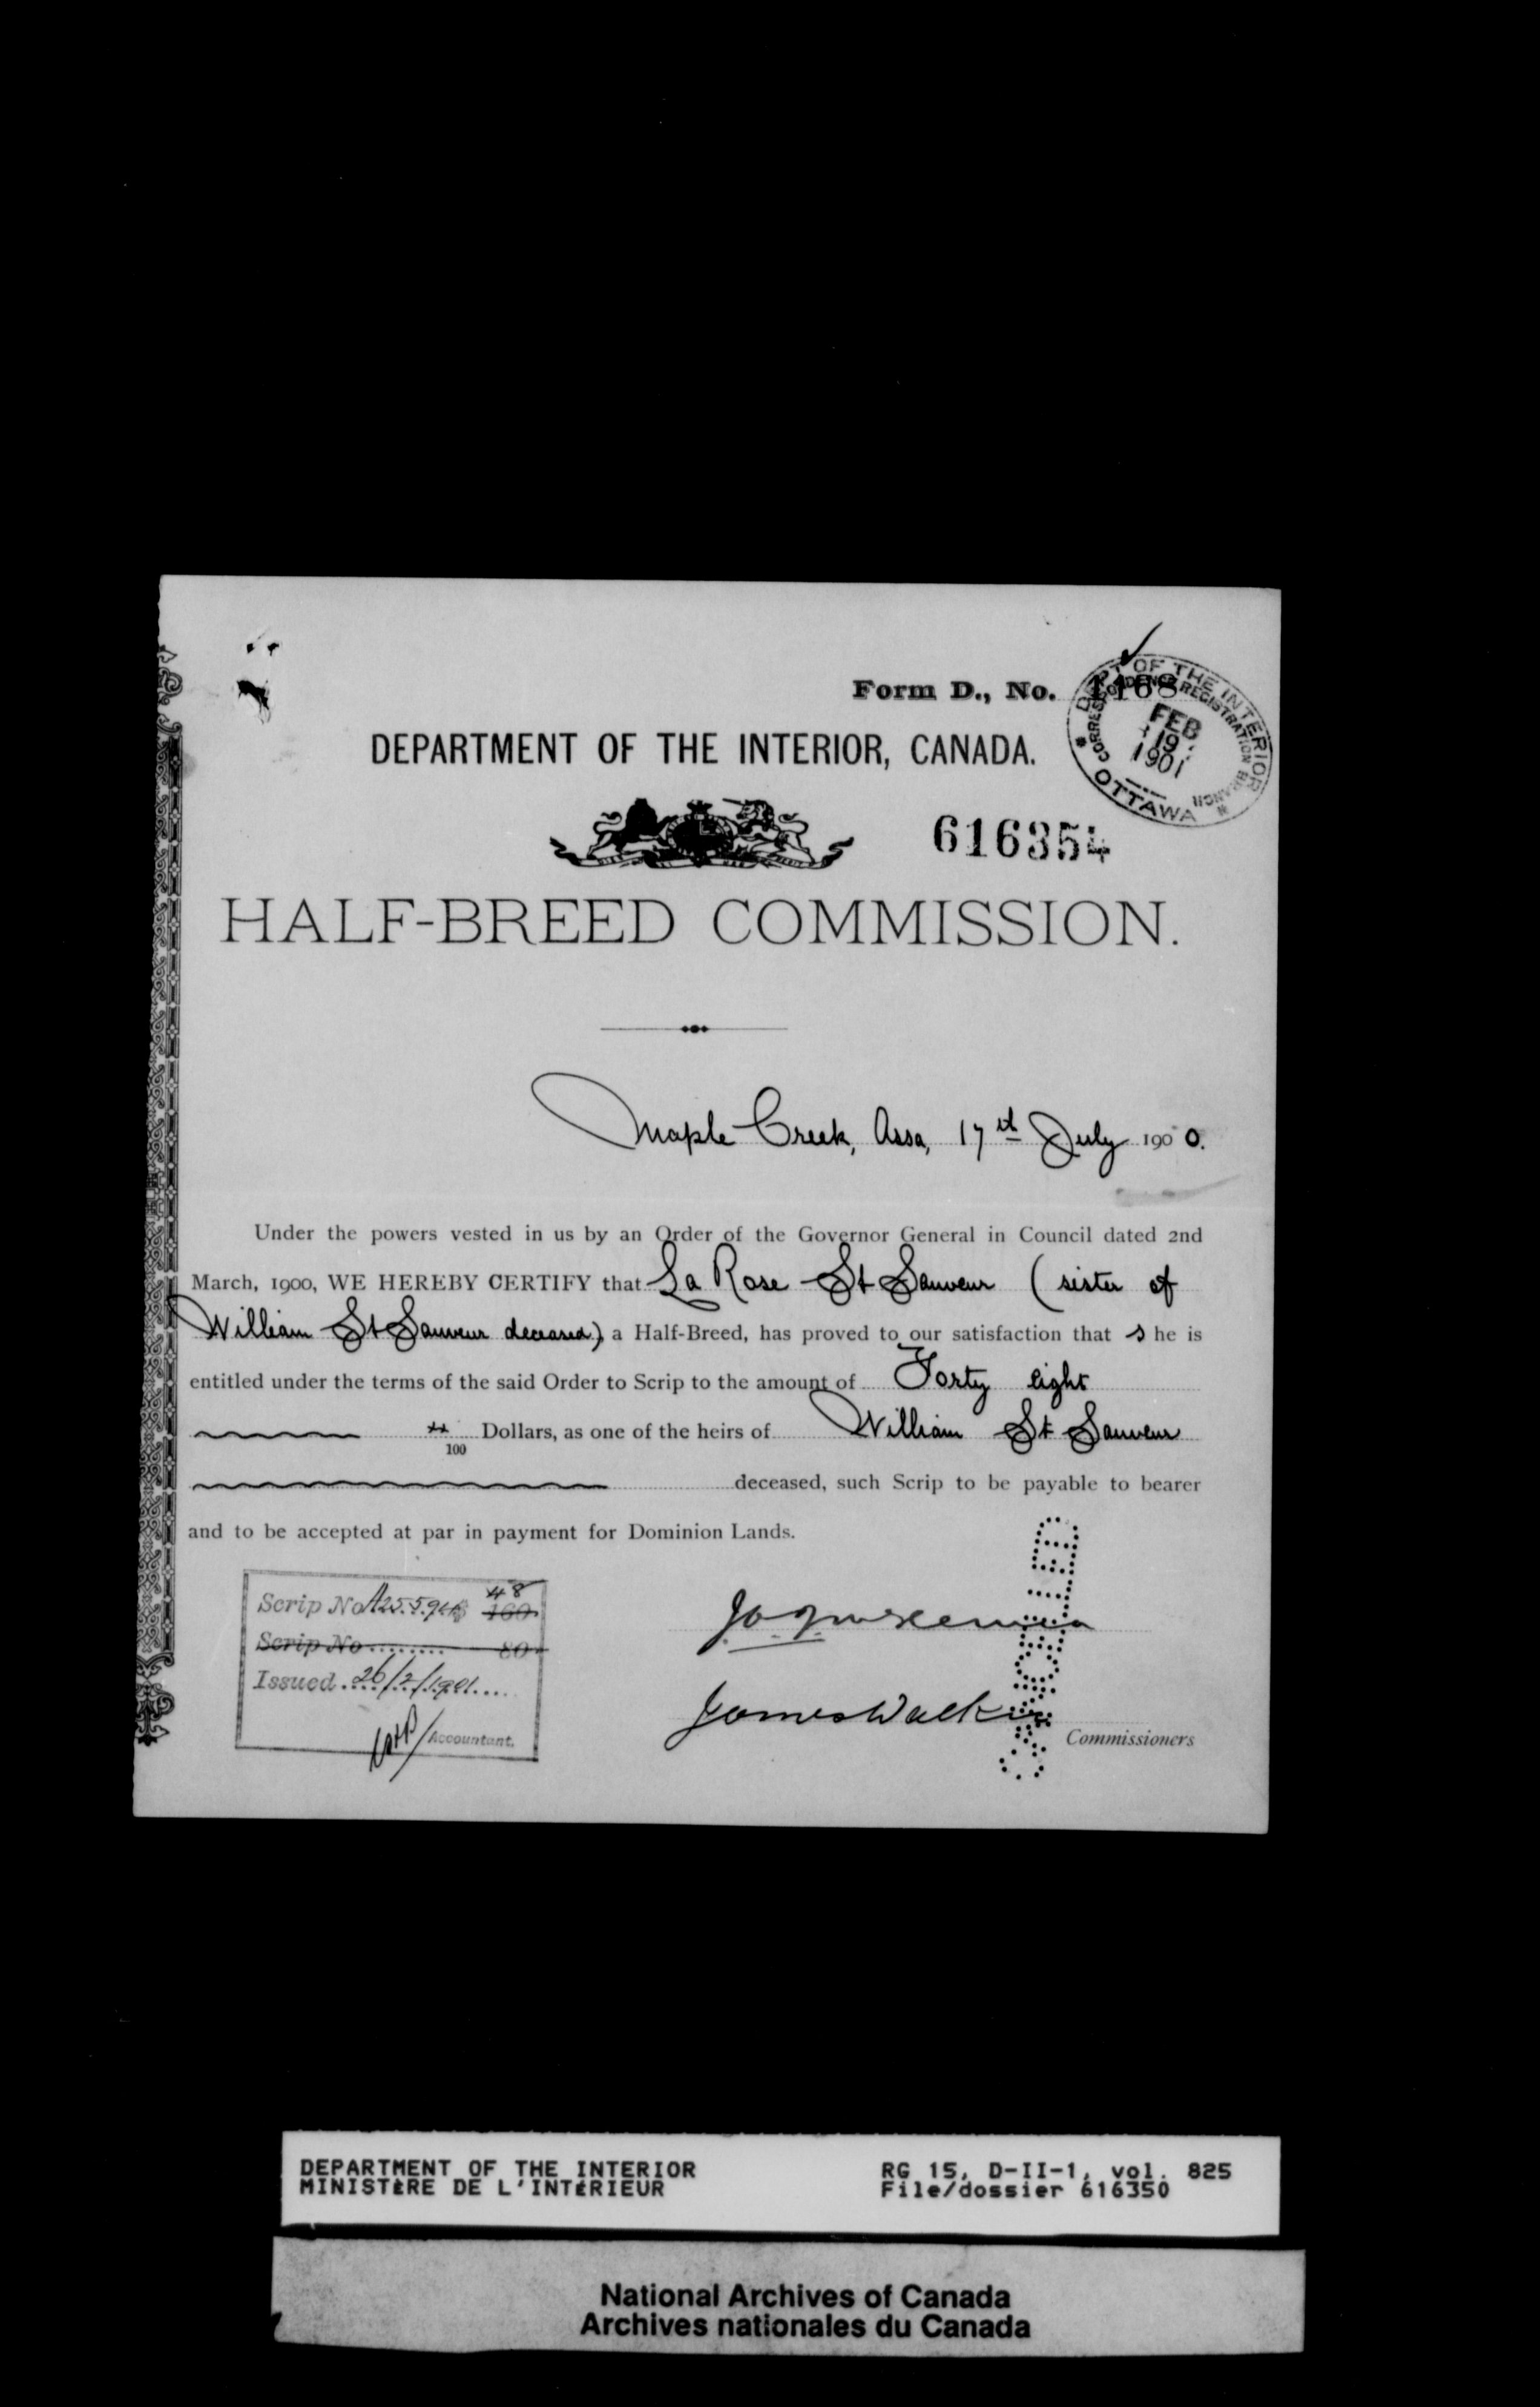 Form D., No. 1168
DEPT OF THE INTERIOR
CORRESPONDENCE REGISTRATION BRANCH
FEB
19
1901
OTTAWA
DEPARTMENT OF THE INTERIOR, CANADA.
616354
HALF-BREED COMMISSION.
Maple Creek, Assa, 17th July 1900.
Under the powers vested in us by an Order of the Governor General in Council dated 2nd
March, 1900, WE HEREBY CERTIFY that La Rose St Sauveur (sister of
William St Sauveur deceased), a Half-Breed, has proved to our satisfaction that she is
entitled under the terms of the said Order to Scrip to the amount of Forty eight
100 Dollars, as one of the heirs of William St Sauveur
deceased, such Scrip to be payable to bearer
and to be accepted at par in payment for Dominion Lands.
Scrip No 48 160
Scrip No 80
Issued 26/2/1901
Accountant.
James Walker
Commissioners
CANCELLED
DEPARTMENT OF THE INTERIOR
MINISTÈRE DE L'INTÉRIEUR
RG 15, D-II-1, vol. 825
File/dossier 616350
National Archives of Canada
Archives nationales du Canada